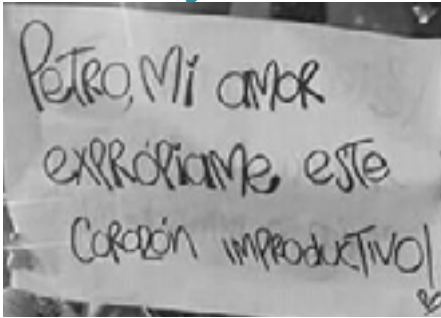 PETRO, Mi AMOR
EXPRÓPIAME ESTE
CORAZÓN IMPRODUCTIVO!